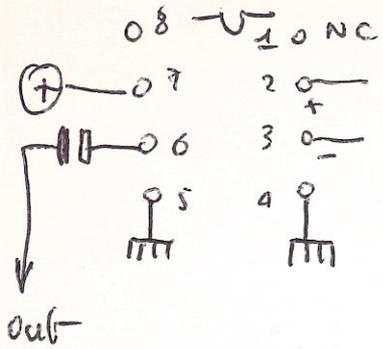 8 1 NC
+ 7 2
+
6 3
-
5 4
out